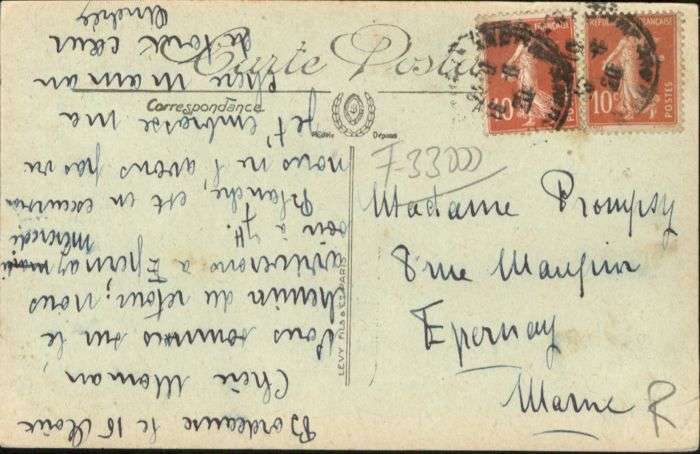 Carte Postale
Correspondance
Modèle Déposé
RÉPUBLIQUE FRANÇAISE
10
POSTES
RÉPUBLIQUE FRANÇAISE
10
POSTES
F-33000
Madame Prompsy
8 rue Maugin
Epernay
Marne
R
LEVY FILS & Cie PARIS
Bordeaux le 15 Août
Chère Maman,
Nous sommes sur le
chemin du retour; nous
arriverons à Epernay mardi
Mercredi
soir à 7H.
Planche, est en excursion
nous ne l'avons pas vu
Je t'embrasse ma
chère maman
de tout cœur
Andrée